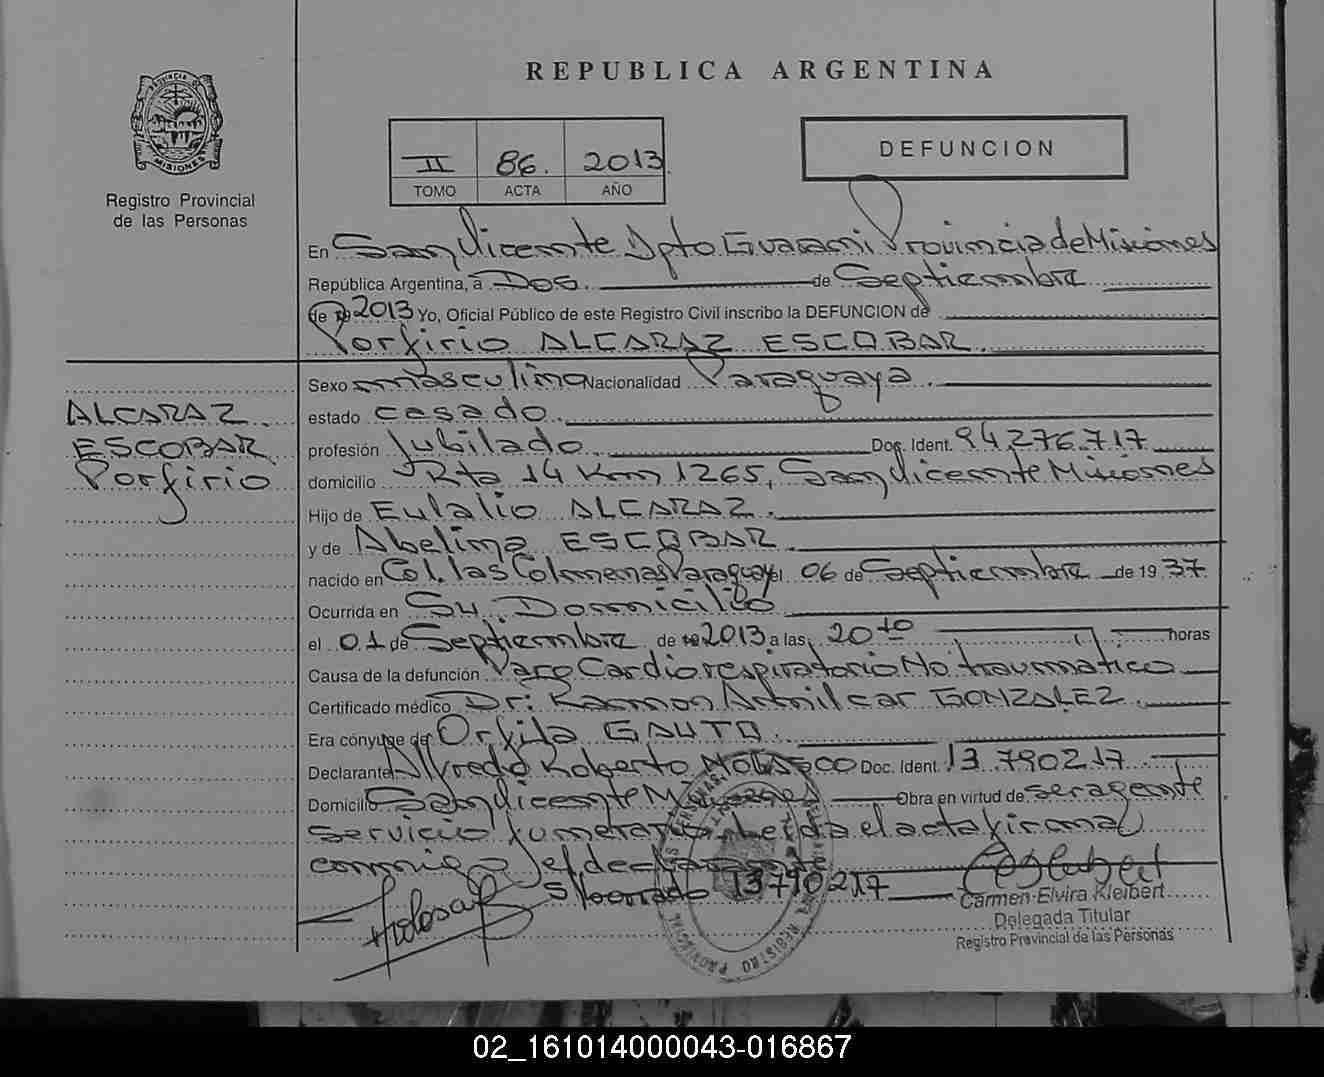 REPUBLICA ARGENTINA
PROVINCIA DE MISIONES
Registro Provincial
de las Personas
II 86. 2013
TOMO ACTA AÑO
DEFUNCION
En San Vicente Dpto Guarani Provincia de Misiones
República Argentina, a Dos. de Septiembre
de 2013 Yo, Oficial Público de este Registro Civil inscribo la DEFUNCION de
Porfirio ALCARAZ ESCOBAR.
ALCARAZ
ESCOBAR
Porfirio
Sexo masculino Nacionalidad Paraguaya.
estado casado.
profesión Jubilado Doc. Ident. 94276.717
domicilio Rta 14 Km 1265, San Vicente Misiones
Hijo de Eulalio ALCARAZ.
y de Abelina ESCOBAR.
nacido en Col. Las Colmenas Paraguay el 06 de Septiembre de 19 37.
Ocurrida en Su Domicilio
el 01 de Septiembre de 2013 a las 20 10 horas
Causa de la defunción Paro Cardiorespiratorio No traumatico
Certificado médico Dr. Ramon Amilcar GONZALEZ.
Era cónyuge de Orfila GAUTO.
Declarante Alfredo Roberto Doc. Ident. 13.790217
Domicilio San Vicente Misiones Obra en virtud de ser agente
servicio funerario. Leida el acta firma
conmigo el declarante
S/borrado 13790217
Carmen Elvira Kleibert
Delegada Titular
Registro Provincial de las Personas
02_161014000043-016867